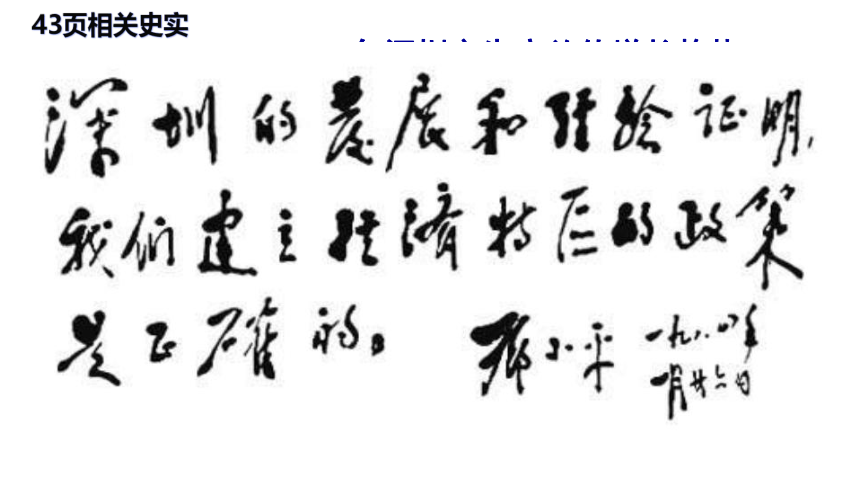 43页相关史实
深圳的发展和经验证明,
我们建立经济特区的政策
是正确的。
邓小平
一九八四年
一月廿六日